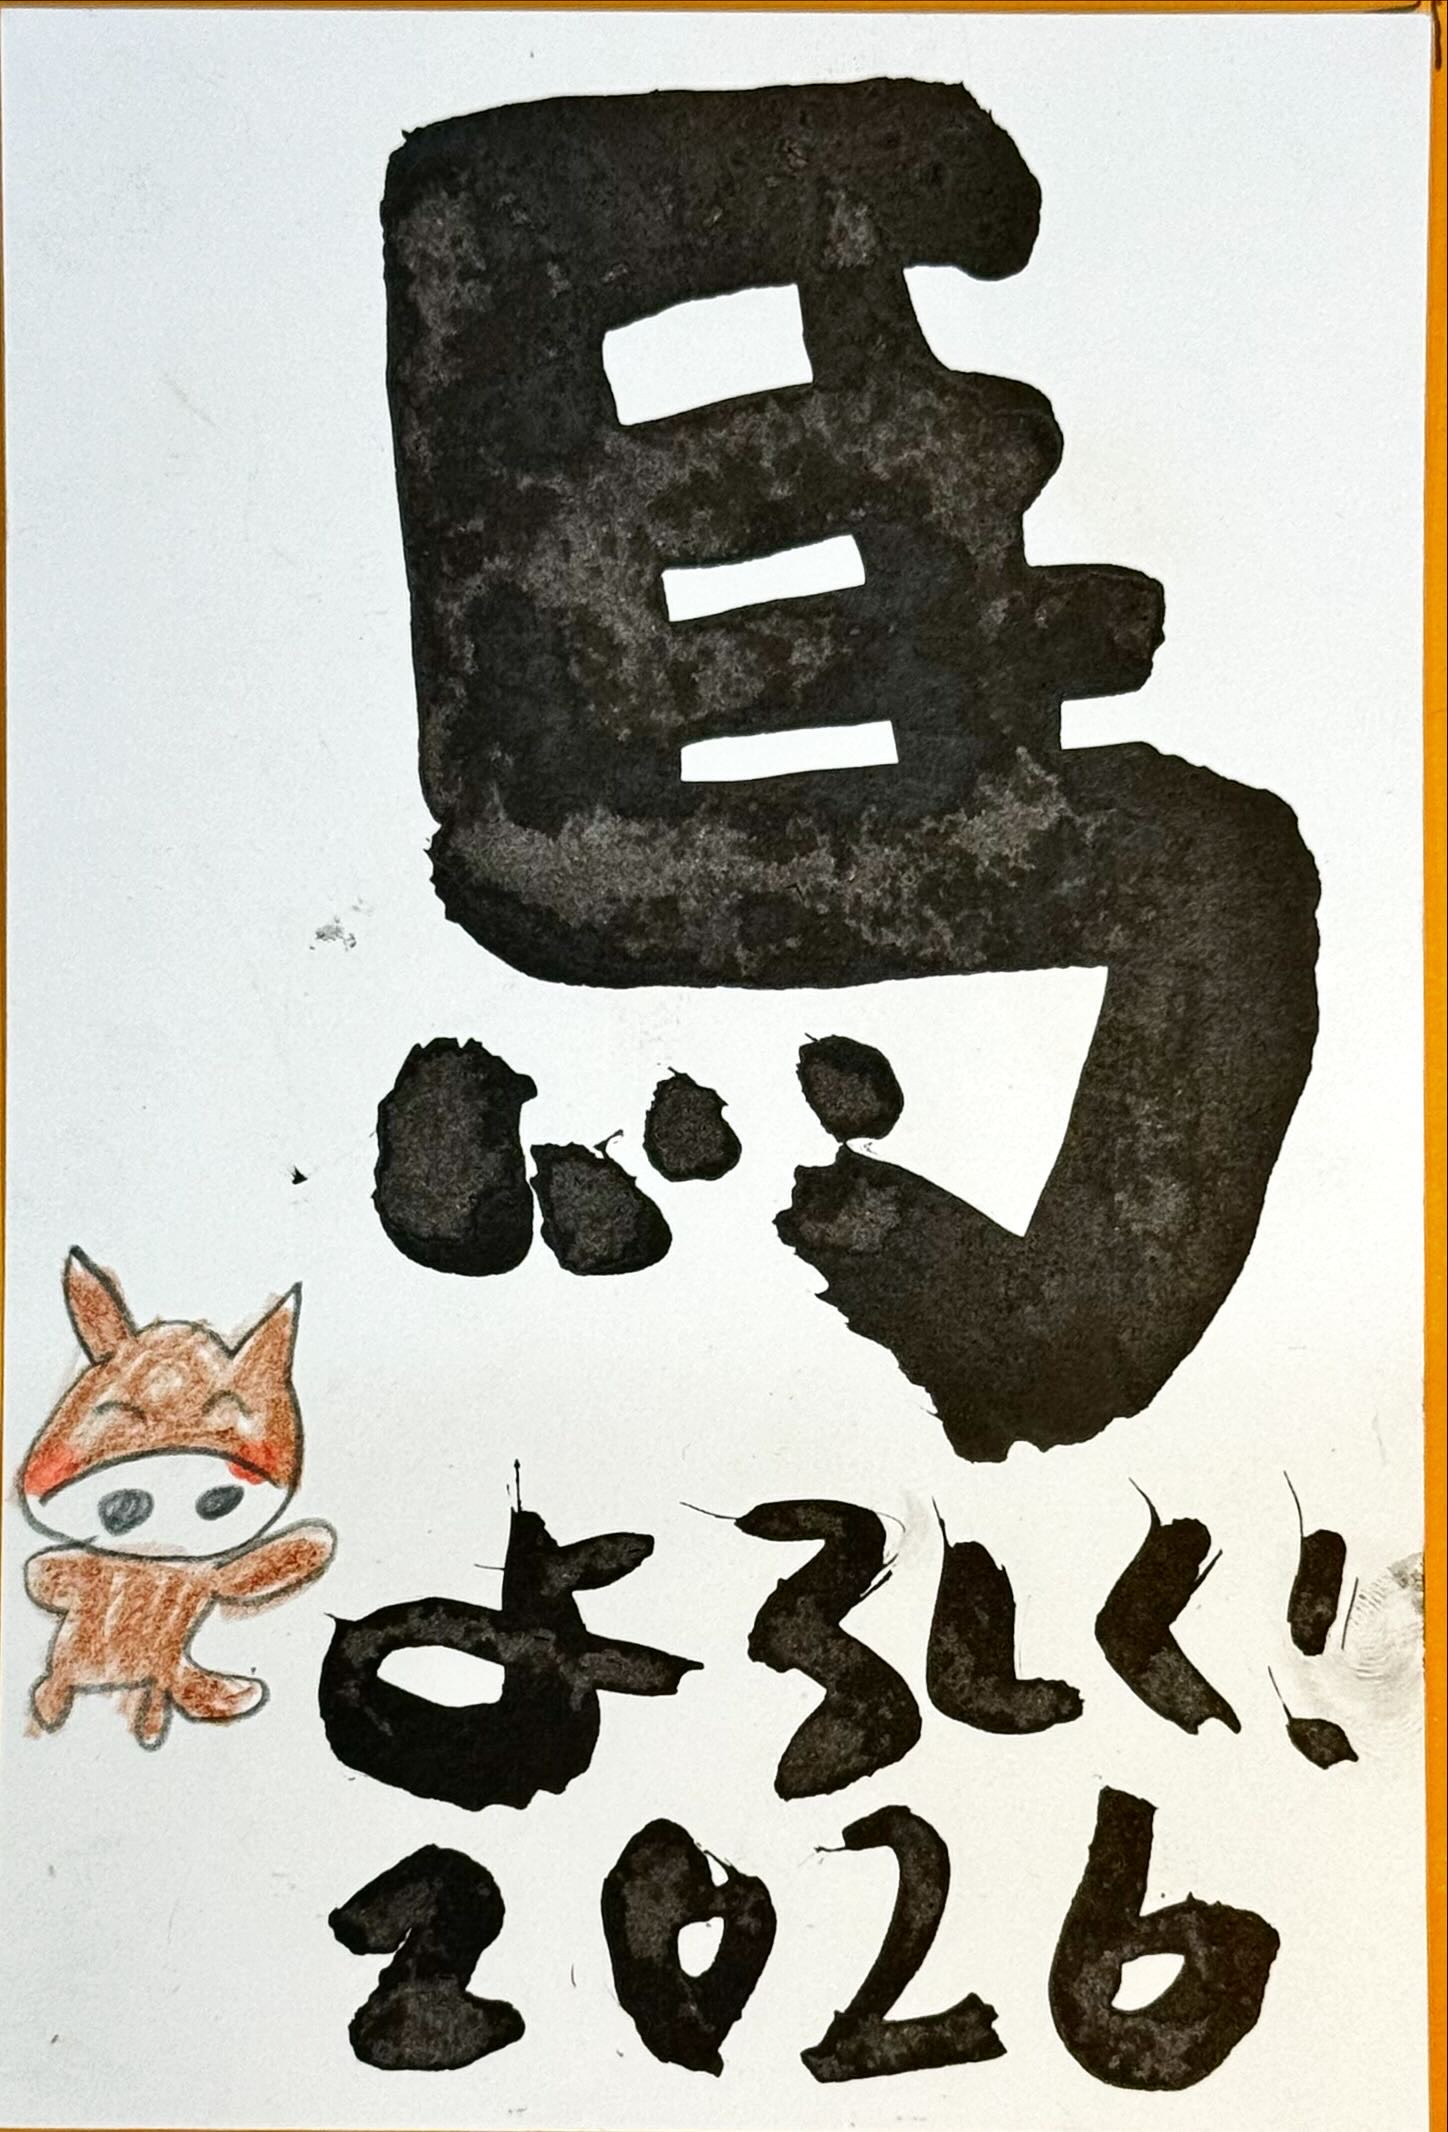 馬
よろしく!
2026